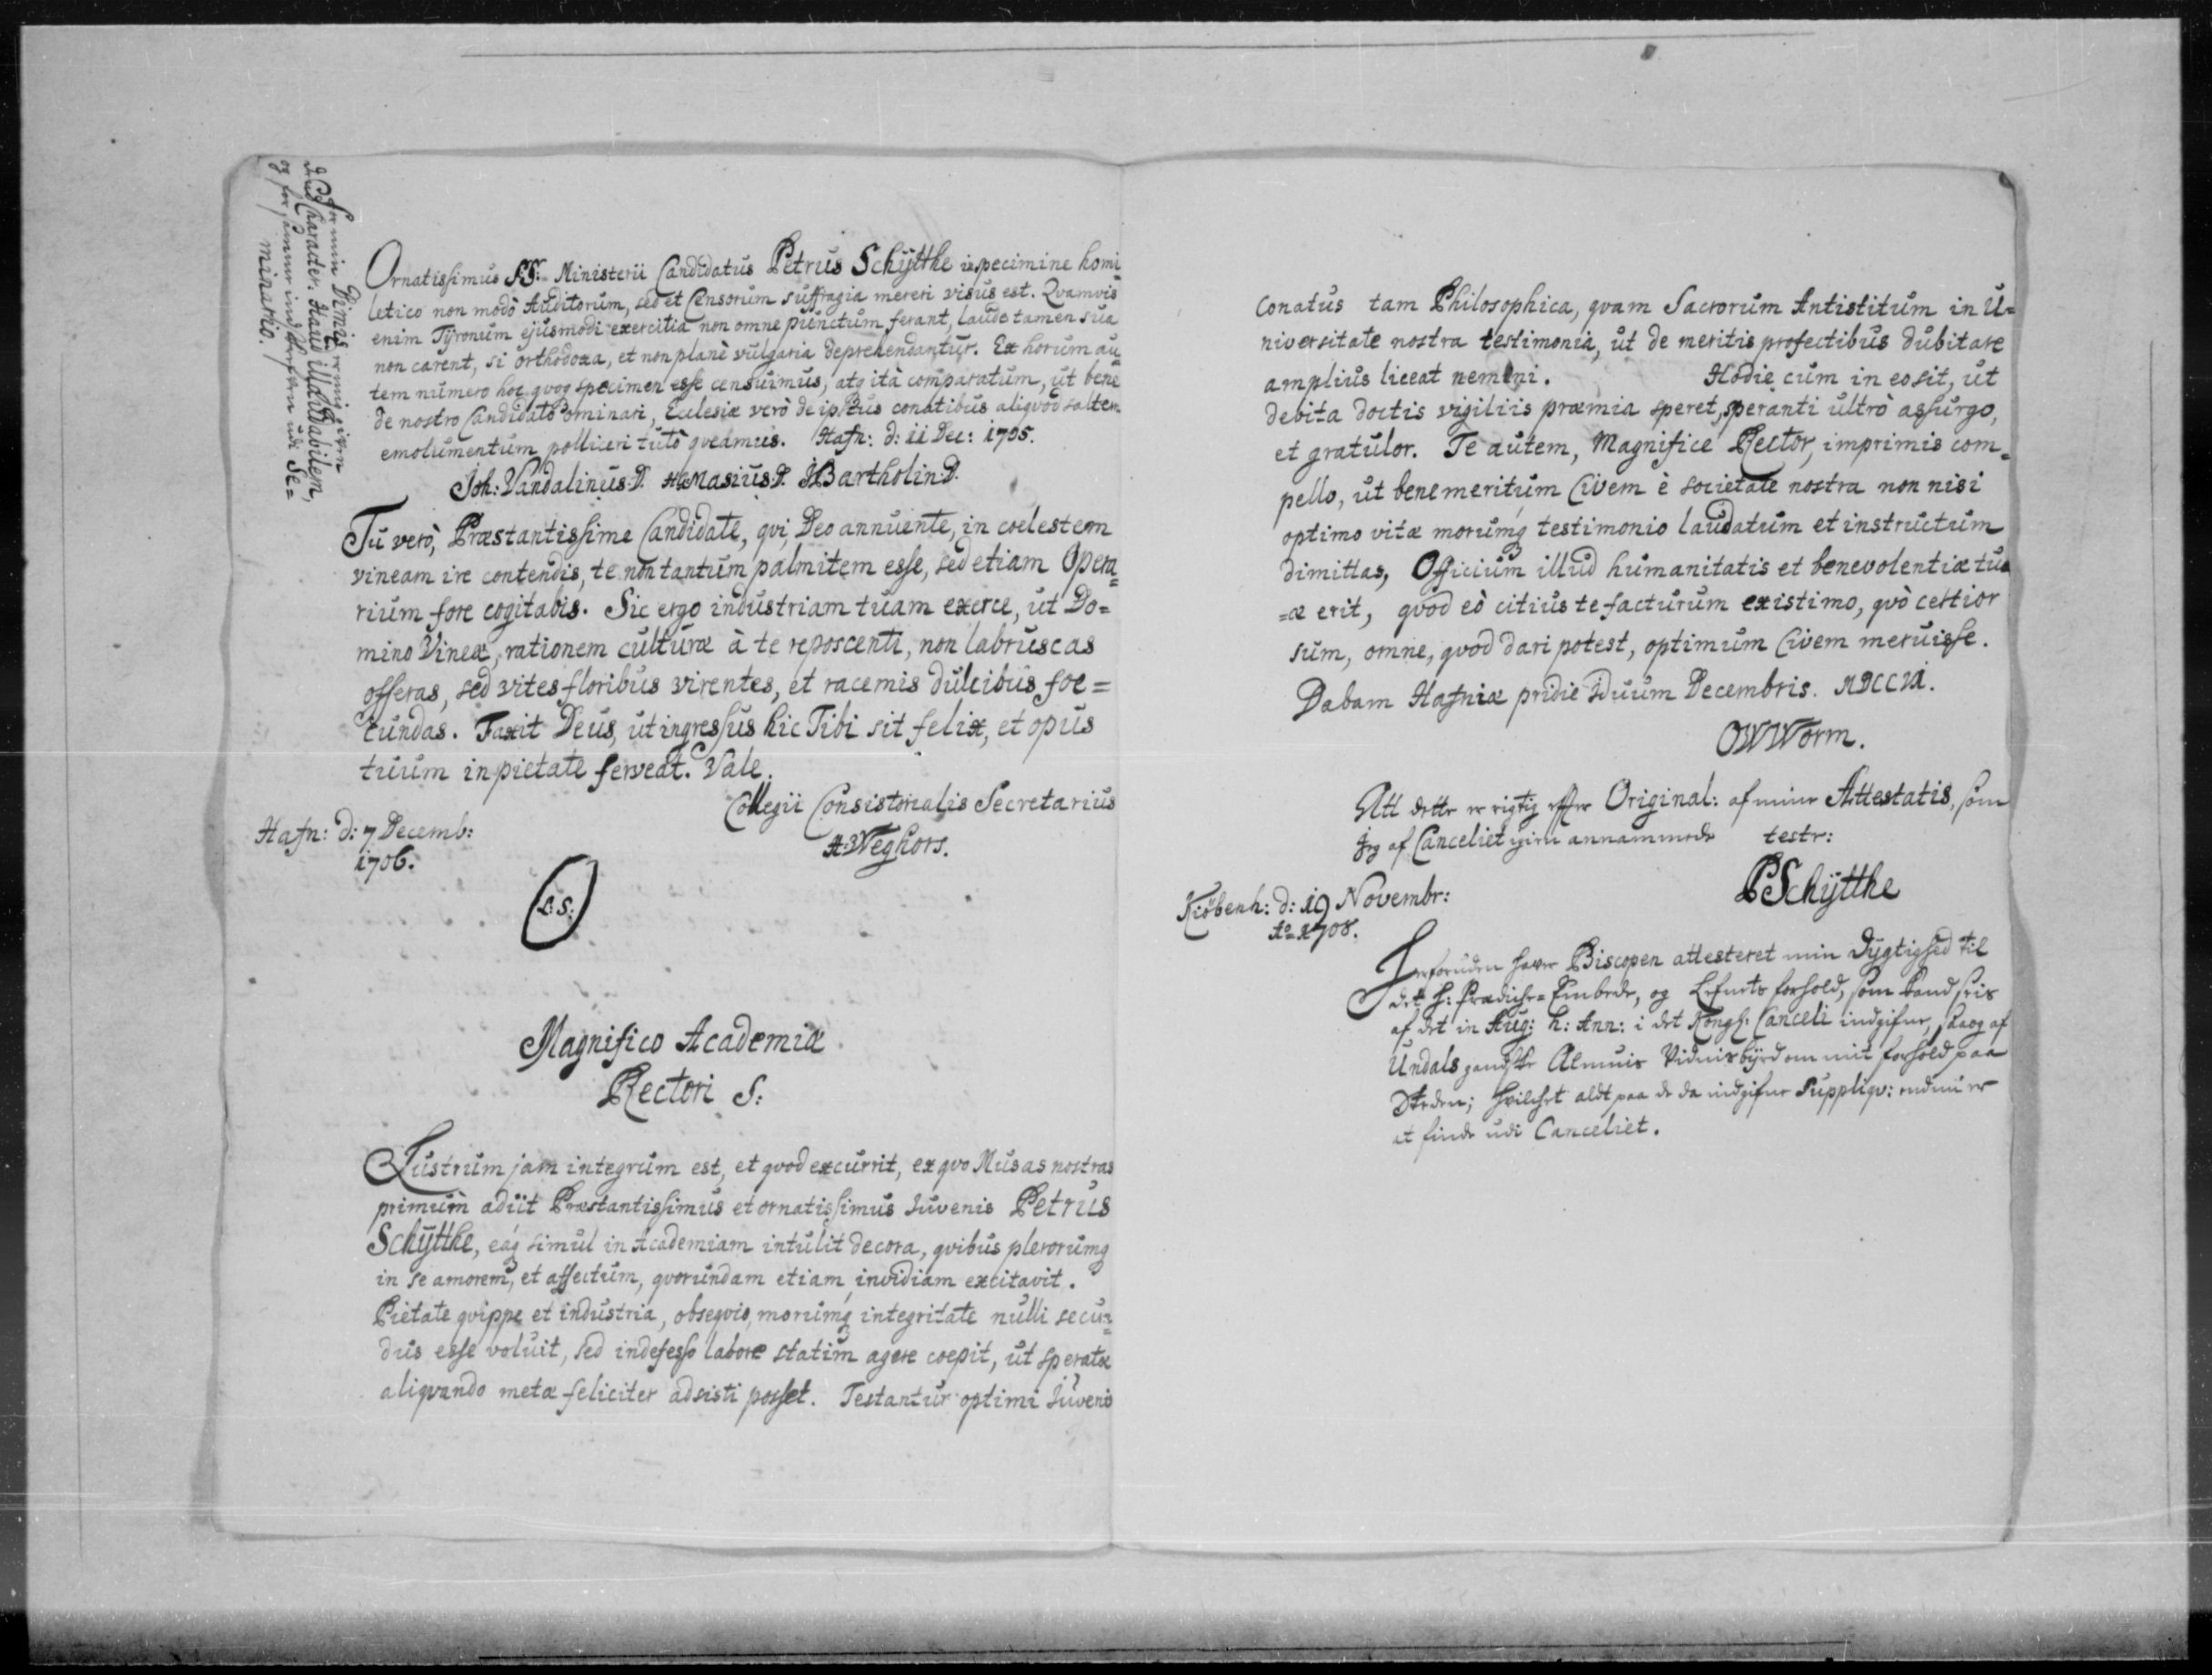 For min Dimis er mig given
den Caracter. Haud illaudabilem,
og for samme indskreven udi Se=
minario.
Ornatissimus SS: Ministerii Candidatus Petrus Schÿtthe in specimine homi
letico non modò Auditorum, sed et Censorum suffragia mereri visus est. Qvamvis
enim Tÿronum ejusmodi exercitia non omne punctum ferant, laude tamen sua
non carent, si orthodoxa, et non planè vulgaria deprehendantur. Ex horum au
tem numero hoc qvoq specimen esse censuimus, atq ità comparatum, ut bene
de nostro Candidato ominari, Ecclesiæ verò de ipsius conatibus aliqvod saltem
emolumentum polliceri tutò qveamus. Hafn: d: 11 Dec: 1705.
Joh: Vandalinus. D. HGMasius. D. Bartholin. D.
Tu verò, Præstantissime Candidate, qvi, Deo annuente, in coelestem
vineam ire contendis, te non tantum palmitem esse, sed etiam Opera=
rium fore cogitabis. Sic ergo industriam tuam exerce, ut Do=
mino Vineæ, rationem culturæ à te reposcenti, non labruscas
offeras, sed vites floribus virentes, et racemis dulcibus foe=
cundas. Faxit Deus, ut ingressus hic Tibi sit felix, et opus
tuum in pietate ferveat. Vale.
Collegii Consistorialis Secretarius
A: Weghors.
Hafn: d: 7 Decemb:
1706.
L.S:
Magnifico Academiæ
Rectori S:
Lustrum jam integrum est, et qvod excurrit, ex qvo Musas nostras
primum adiit Præstantissimus et ornatissimus Juvenis Petrus
Schÿtthe, eaq simul in Academiam intulit decora, qvibus plerorumq
in se amorem, et affectum, qvorundam etiam invidiam excitavit.
Pietate qvippe et industria, obseqvio, morumq integritate nulli secu=
dus esse voluit, sed indefesso labore statim agere coepit, ut speratæ
aliqvando metæ feliciter adsisti posset. Testantur optimi Juvenis
conatus tam Philosophica, qvam Sacrorum Antistitum in U=
niversitate nostra testimonia, ut de meritis profectibus dubitare
amplius liceat nemini. Hodie cum in eo sit, ut
debita doctis vigiliis præmia speret, speranti ultrò assurgo,
et gratulor. Te autem, Magnifice Rector, imprimis com=
pello, ut benemeritum Civem è societate nostra non nisi
optimo vitæ morumq testimonio laudatum et instructum
dimittas, Officium illud humanitatis et benevolentiæ tu
=æ erit, qvod eò citius te facturum existimo, qvò certior
sum, omne, qvod dari potest, optimum Civem meruisse.
Dabam Hafniæ pridie Iduum Decembris. MDCCVI.
OWWorm.
Att dette er rigtig efter Original: af mine Attestatis, som
jeg af Canceliet igien annammede testr:
PSchÿtthe
Kiöbenh: d: 19 Novembr:
Ao 1708.
Herforuden haver Biscopen attesteret min Dÿgtighed til
det H: Prædiche=Embede, og Lefnets forhold, som kand seis
af det in Aug: h: Ann: i det Kongl: Canceli indgifne, saa og af
Undals gandske Almuis Vidnisbÿrd om mit forhold paa
Steden; hvilchet aldt paa de da indgifne Suppliqv: endnu er
at finde udi Canceliet.